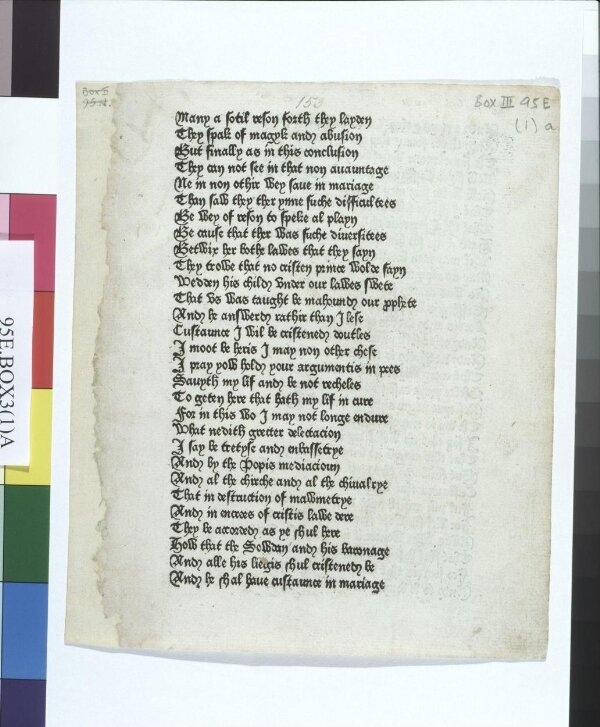 Box II
95 E.
150
Box III 95E
(1) a
Many a sotil reson forth they layden
They spak of magyk and abusion
But finally as in this conclusion
They can not see in that non auauntage
Ne in non othir wey saue in mariage
Than saw they ther ynne suche difficultees
Be wey of reson to speke al playn
Be cause that ther was suche diuersitees
Betwix her bothe lawes that they sayn
They trowe that no cristen prince wolde fayn
Wedden his child vnder our lawes swete
That vs was taught be mahound our prophete
And he answerd rathir than I lese
Custaunce I wil be cristened doutles
I moot be heris I may non other chese
I pray yow hold your argumentis in pees
Sauyth my lif and be not recheles
To geten here that hath my lif in cure
For in this wo I may not longe endure
What nedith gretter delectacion
I say be tretyse and enbassetrye
And by the Popis mediacioun
And al the chirche and al the chiualrye
That in destruction of mawmetrye
And in encrees of cristis lawe dere
They be accorded as ye shul here
How that the Sowdan and his baronage
And alle his liegis shul cristened be
And he shal haue custaunce in mariage
95E.BOX3(1)A